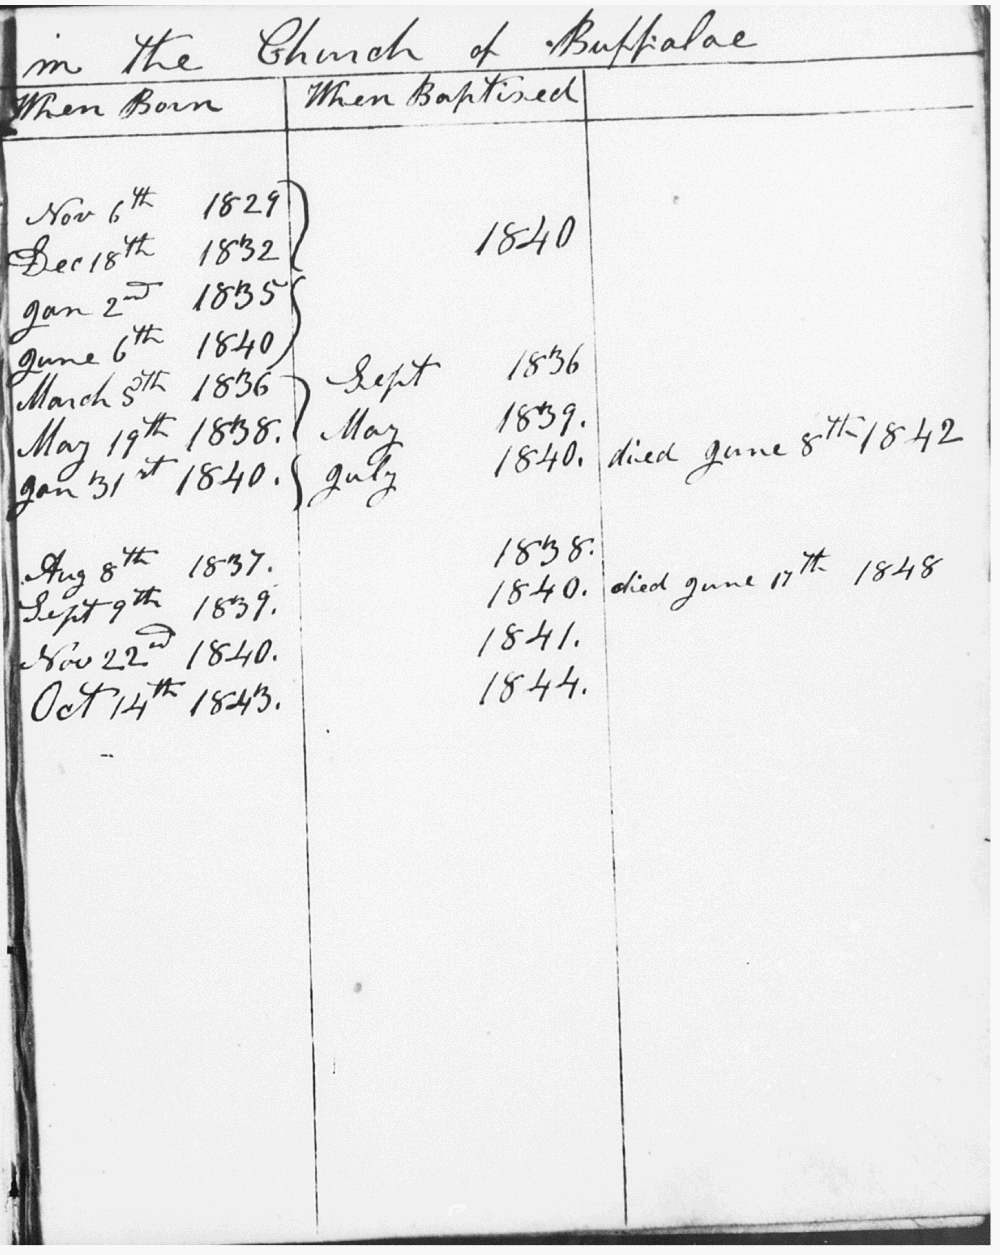 in the Church of Buffialoe
When Born When Baptised
Nov 6th 1829
1840
Dec 18th 1832
Jan 2nd 1835
June 6th 1840
March 5th 1836 Sept 1836
May 19th 1838. May 1839.
Jan 31st 1840. July 1840. died June 8th 1842
Aug 8th 1837. 1838.
Sept 9th 1839. 1840. died June 17th 1848
Nov 22nd 1840. 1841.
Oct 14th 1843. 1844.